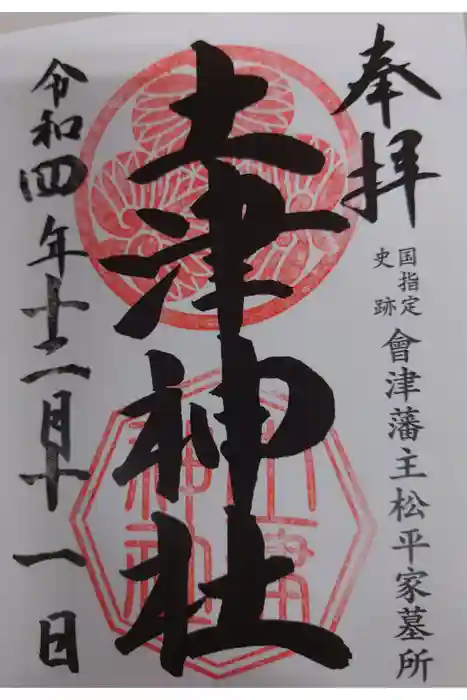 奉拝
国指定
史跡
會津藩主松平家墓所
土津神社
令和四年十二月十一日
土津
神社